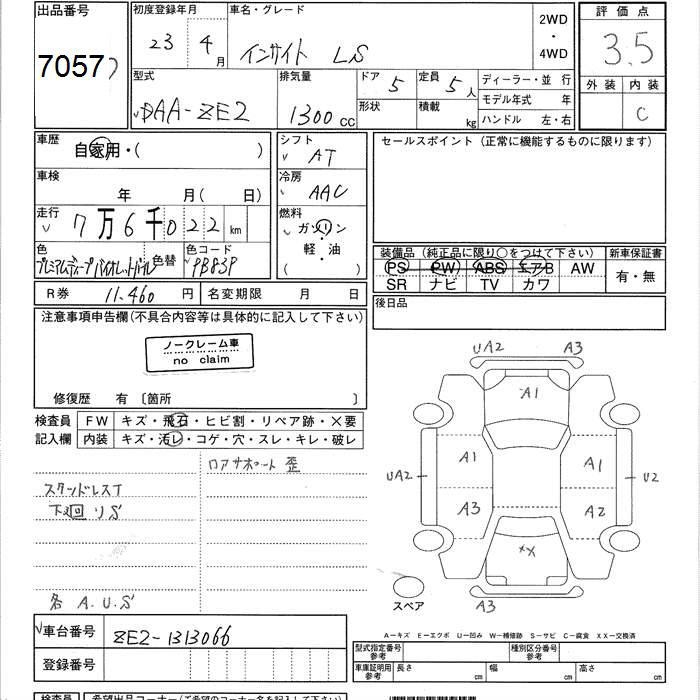 出品番号
7057
初度登録年月
23 年 4 月
車名・グレード
インサイト LS
2WD
・
4WD
評価点
3.5
外装 内装
C
型式
DAA-ZE2
排気量
1300 CC
ドア 5
形状
定員 5 人
積載 kg
ディーラー・並 行
モデル年式 年
ハンドル 左・右
車歴
自家用・( )
車検
年 月( 日)
走行
7万6千022 km
色
プレミアムディープバイオレットパール
色替
色コード
PB83P
シフト
AT
冷房
AAC
燃料
ガソリン
軽・油
( )
セールスポイント (正常に機能するものに限ります)
装備品 (純正品に限り○をつけて下さい)
PS PW ABS エアB AW
SR ナビ TV カワ
新車保証書
有・無
R券 11,460 円
名変期限 月 日
後日品
注意事項申告欄(不具合内容等は具体的に記入して下さい)
ノークレーム車
no claim
修復歴 有 〔箇所 〕
検査員
記入欄
FW キズ・飛石・ヒビ割・リペア跡・×要
内装 キズ・汚レ・コゲ・穴・スレ・キレ・破レ
ロアサポート 歪
スタッドレスT
下廻 リS
各 A.U.S
UA2
A3
A1
A1
A1
UA2
U2
A3
A2
XX
A3
スペア
A－キズ E－エクボ U－凹み W－補修跡 S－サビ C－腐食 XX－交換済
車台番号
ZE2-1313066
登録番号
型式指定番号
参考
種別区分番号
参考
車庫証明用
参考
長さ cm
幅 cm
高さ cm
検査員
希望出品コーナー(ご希望のコーナー名を記入